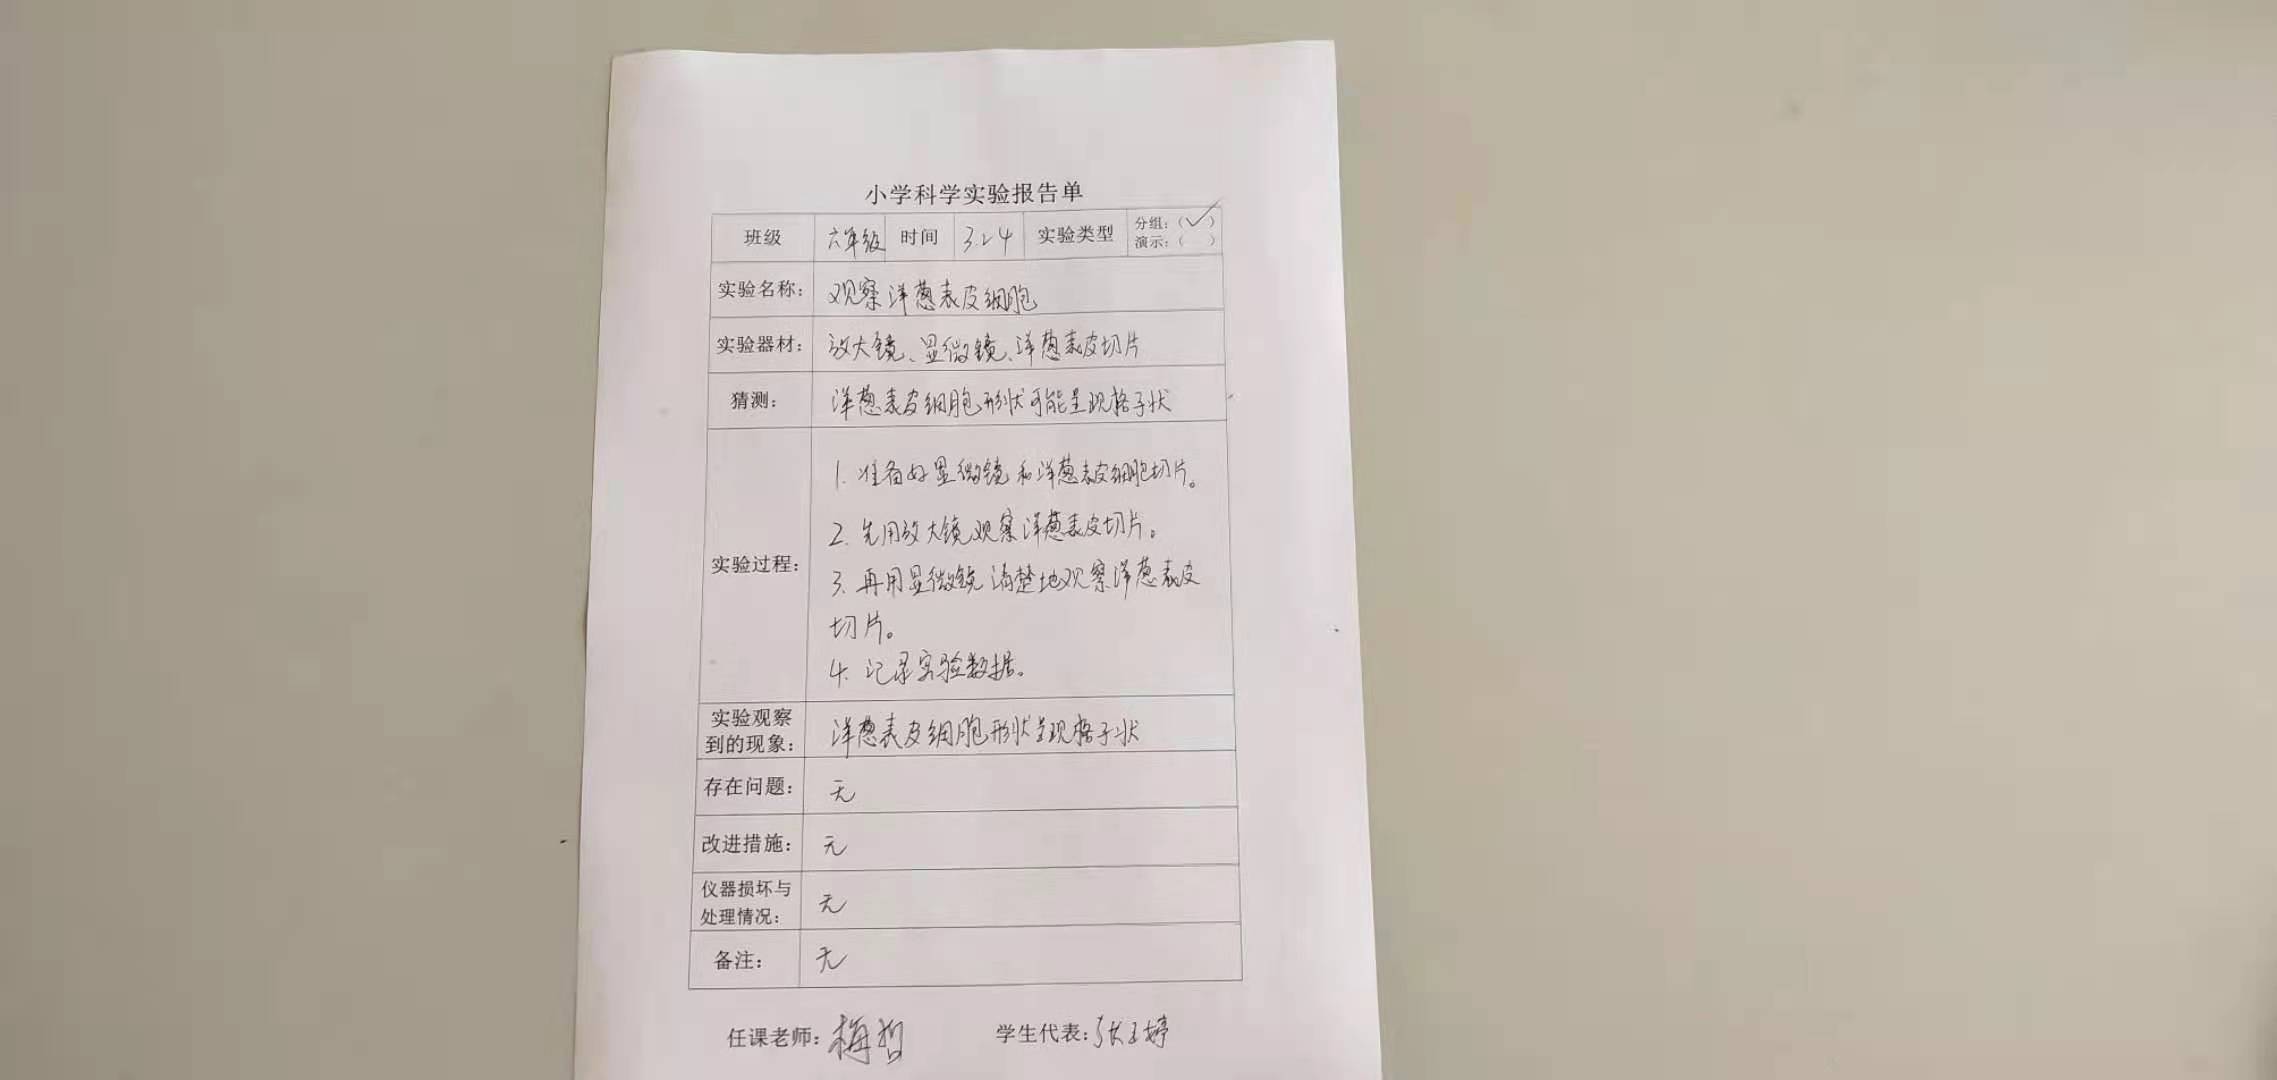 小学科学实验报告单
班级 六年级 时间 3.24 实验类型 分组：（✓）
演示：（ ）
实验名称： 观察洋葱表皮细胞
实验器材： 放大镜、显微镜、洋葱表皮切片
猜测： 洋葱表皮细胞形状可能呈现格子状
实验过程：
1. 准备好显微镜和洋葱表皮细胞切片。
2. 先用放大镜观察洋葱表皮切片。
3. 再用显微镜清楚地观察洋葱表皮
切片。
4. 记录实验数据。
实验观察
到的现象： 洋葱表皮细胞形状呈现格子状
存在问题： 无
改进措施： 无
仪器损坏与
处理情况： 无
备注： 无
任课老师：梅哲 学生代表：张玉婷